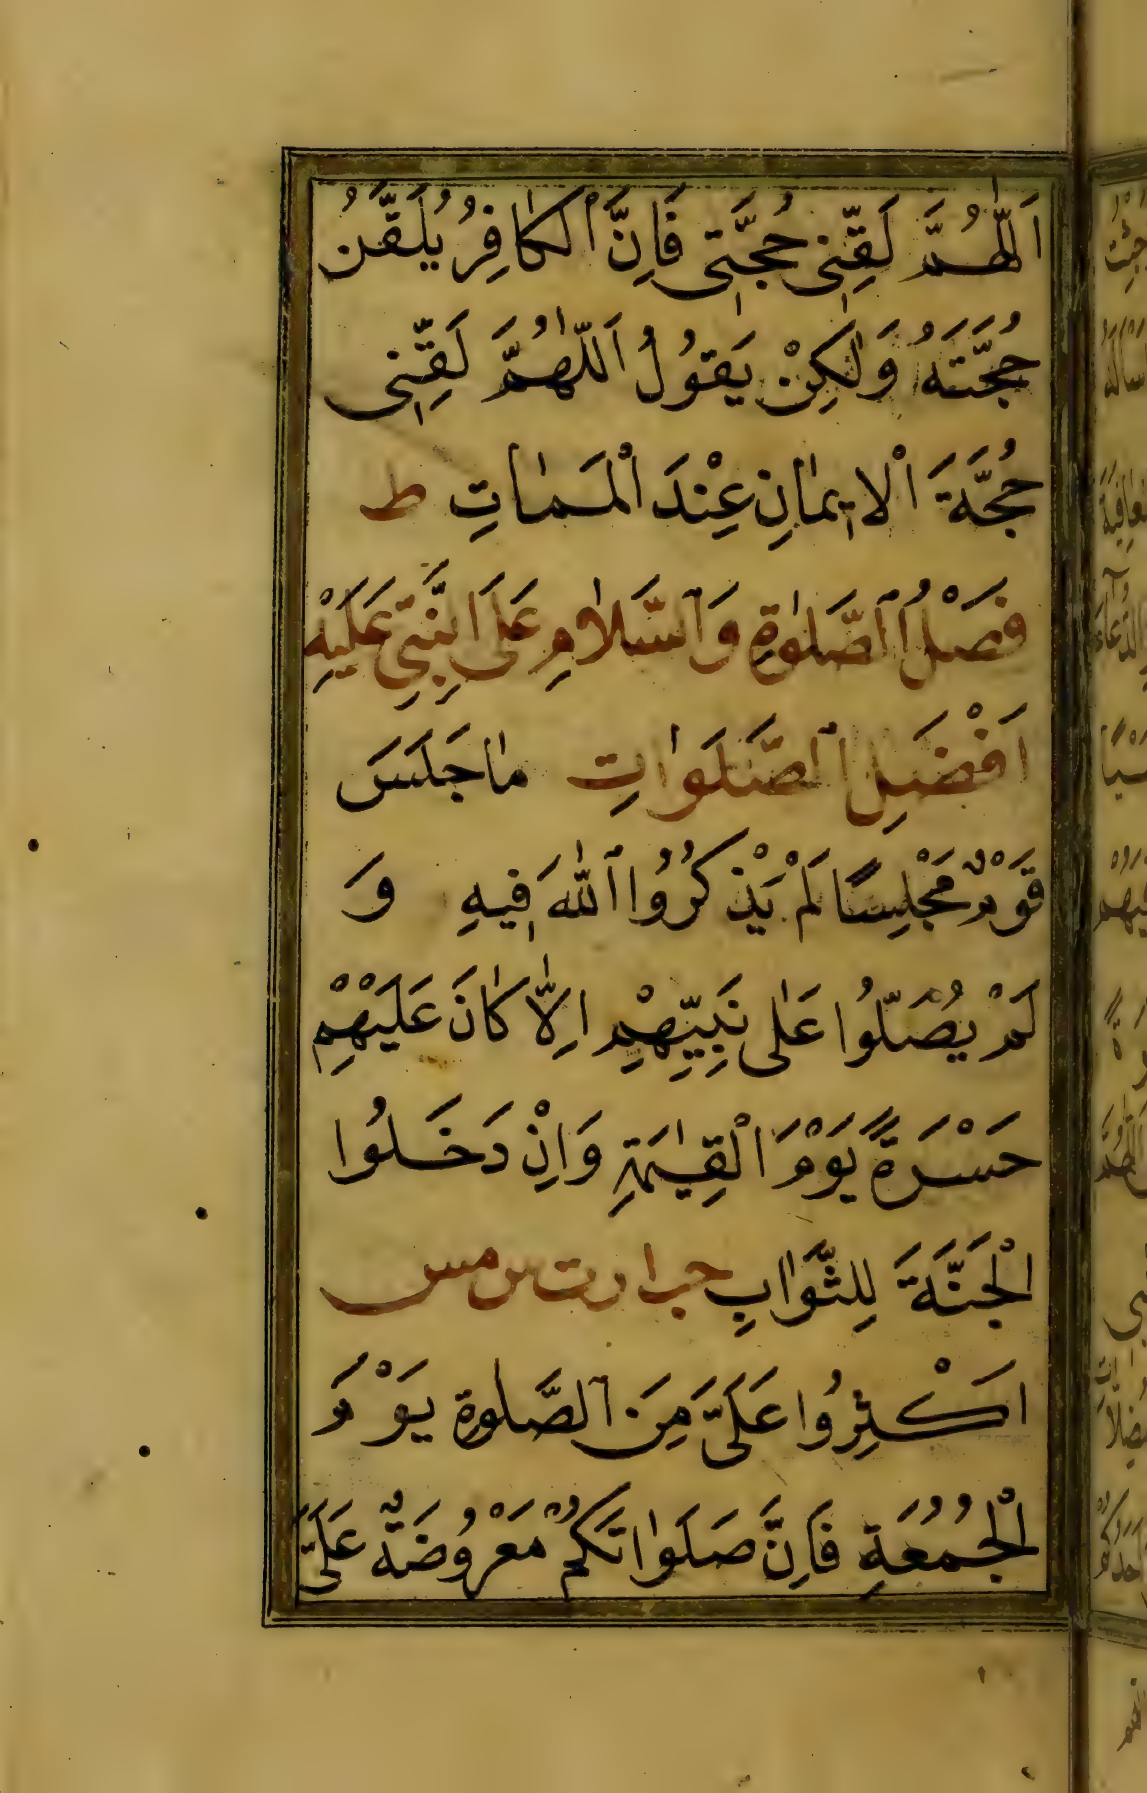 اَللّٰهُمَّ لَقِّنِى حُجَّتِى فَاِنَّ الْكَافِرُ يُلَقَّنُ
حُجَّتَهُ وَلٰكِنْ يَقُولُ اَللّٰهُمَّ لَقِّنِى
حُجَّةَ الْاِيمٰانِ عِنْدَ الْمَمٰاتِ ط
فَضْلُ الصَّلٰوةِ وَالسَّلٰامِ عَلَى النَّبِيِّ عَلَيْهِ
اَفْضَلِ الصَّلَوٰاتِ مٰا جَلَسَ
قَوْمٌ مَجْلِسًا لَمْ يَذْكُرُوا اللّٰهَ فِيهِ وَ
لَمْ يُصَلُّوا عَلٰى نَبِيِّهِمْ اِلّٰا كٰانَ عَلَيْهِمْ
حَسْرَةً يَوْمَ الْقِيٰمَةِ وَاِنْ دَخَلُوا
الْجَنَّةَ لِلثَّوٰابِ حب ا د ت س مس
اَكْثِرُوا عَلَىَّ مِنَ الصَّلٰوةِ يَوْمَ
الْجُمُعَةِ فَاِنَّ صَلَوٰاتَكُمْ مَعْرُوضَةٌ عَلَىَّ